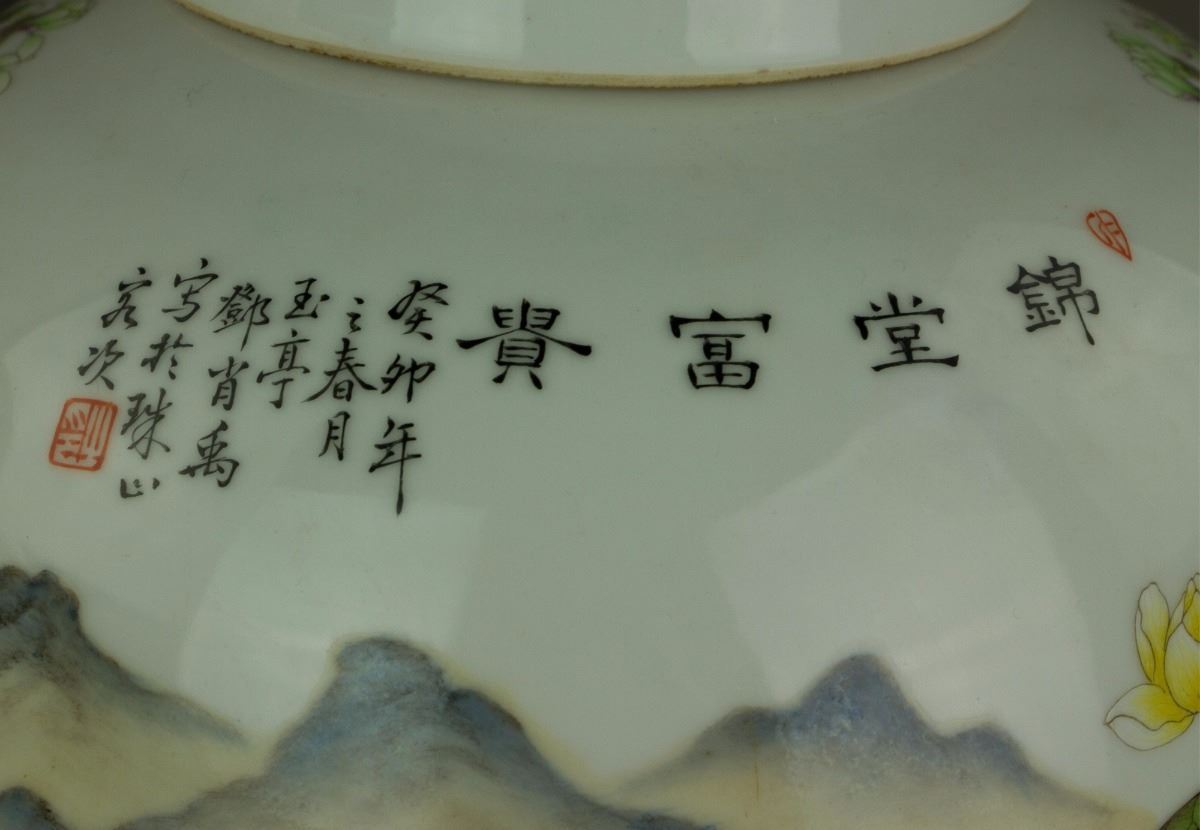 錦堂富貴
癸卯年
之春月
玉亭
鄧肖禹
写於珠山
客次